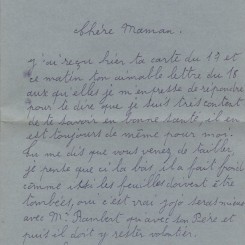 Chère Maman.
J'ai reçu hier ta carte du 17 et
ce matin ton aimable lettre du 18
aux qu'elles je m'empresse de répondre
pour te dire que je suis très content
de te savoir en bonne santé, il en
est toujours de même pour moi.
Tu me dis que vous venez de
je pense que ci la bas, il a fait froid
comme ici les feuilles doivent être
tombées, oui c'est vrai Jojo serai mieux
avec Mr Rambert ou avec son Père et
puis il doit y rester volontier.